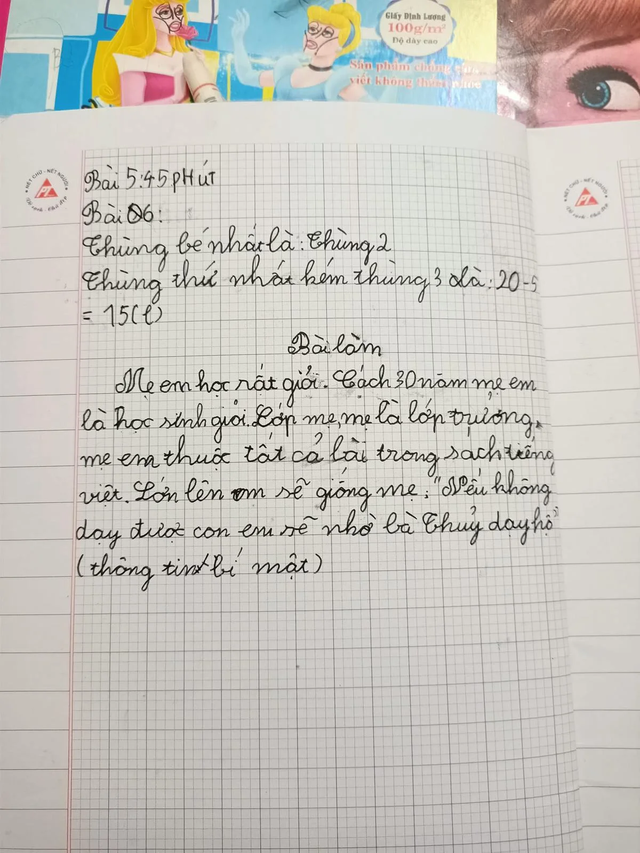 Giấy Định Lượng
100g/m²
Độ dày cao
Sản phẩm chống
viết không thấm
NÉT CHỮ - NẾT NGƯỜI
Bài 5:45 pHút
Bài 06:
Thùng bé nhất là: Thùng 2
Thùng thứ nhất kém thùng 3 là: 20-5
= 15(l)
Bài làm
Mẹ em học rất giỏi. Cách 30 năm mẹ em
là học sinh giỏi. Lớp mẹ, mẹ là lớp trưởng,
mẹ em thuộc tất cả bài trong sach tiếng
việt. Lớn lên em sẽ giống mẹ: "Nếu không
dạy được con em sẽ nhờ bà Thuỷ dạy hộ"
(thông tin bí mật)